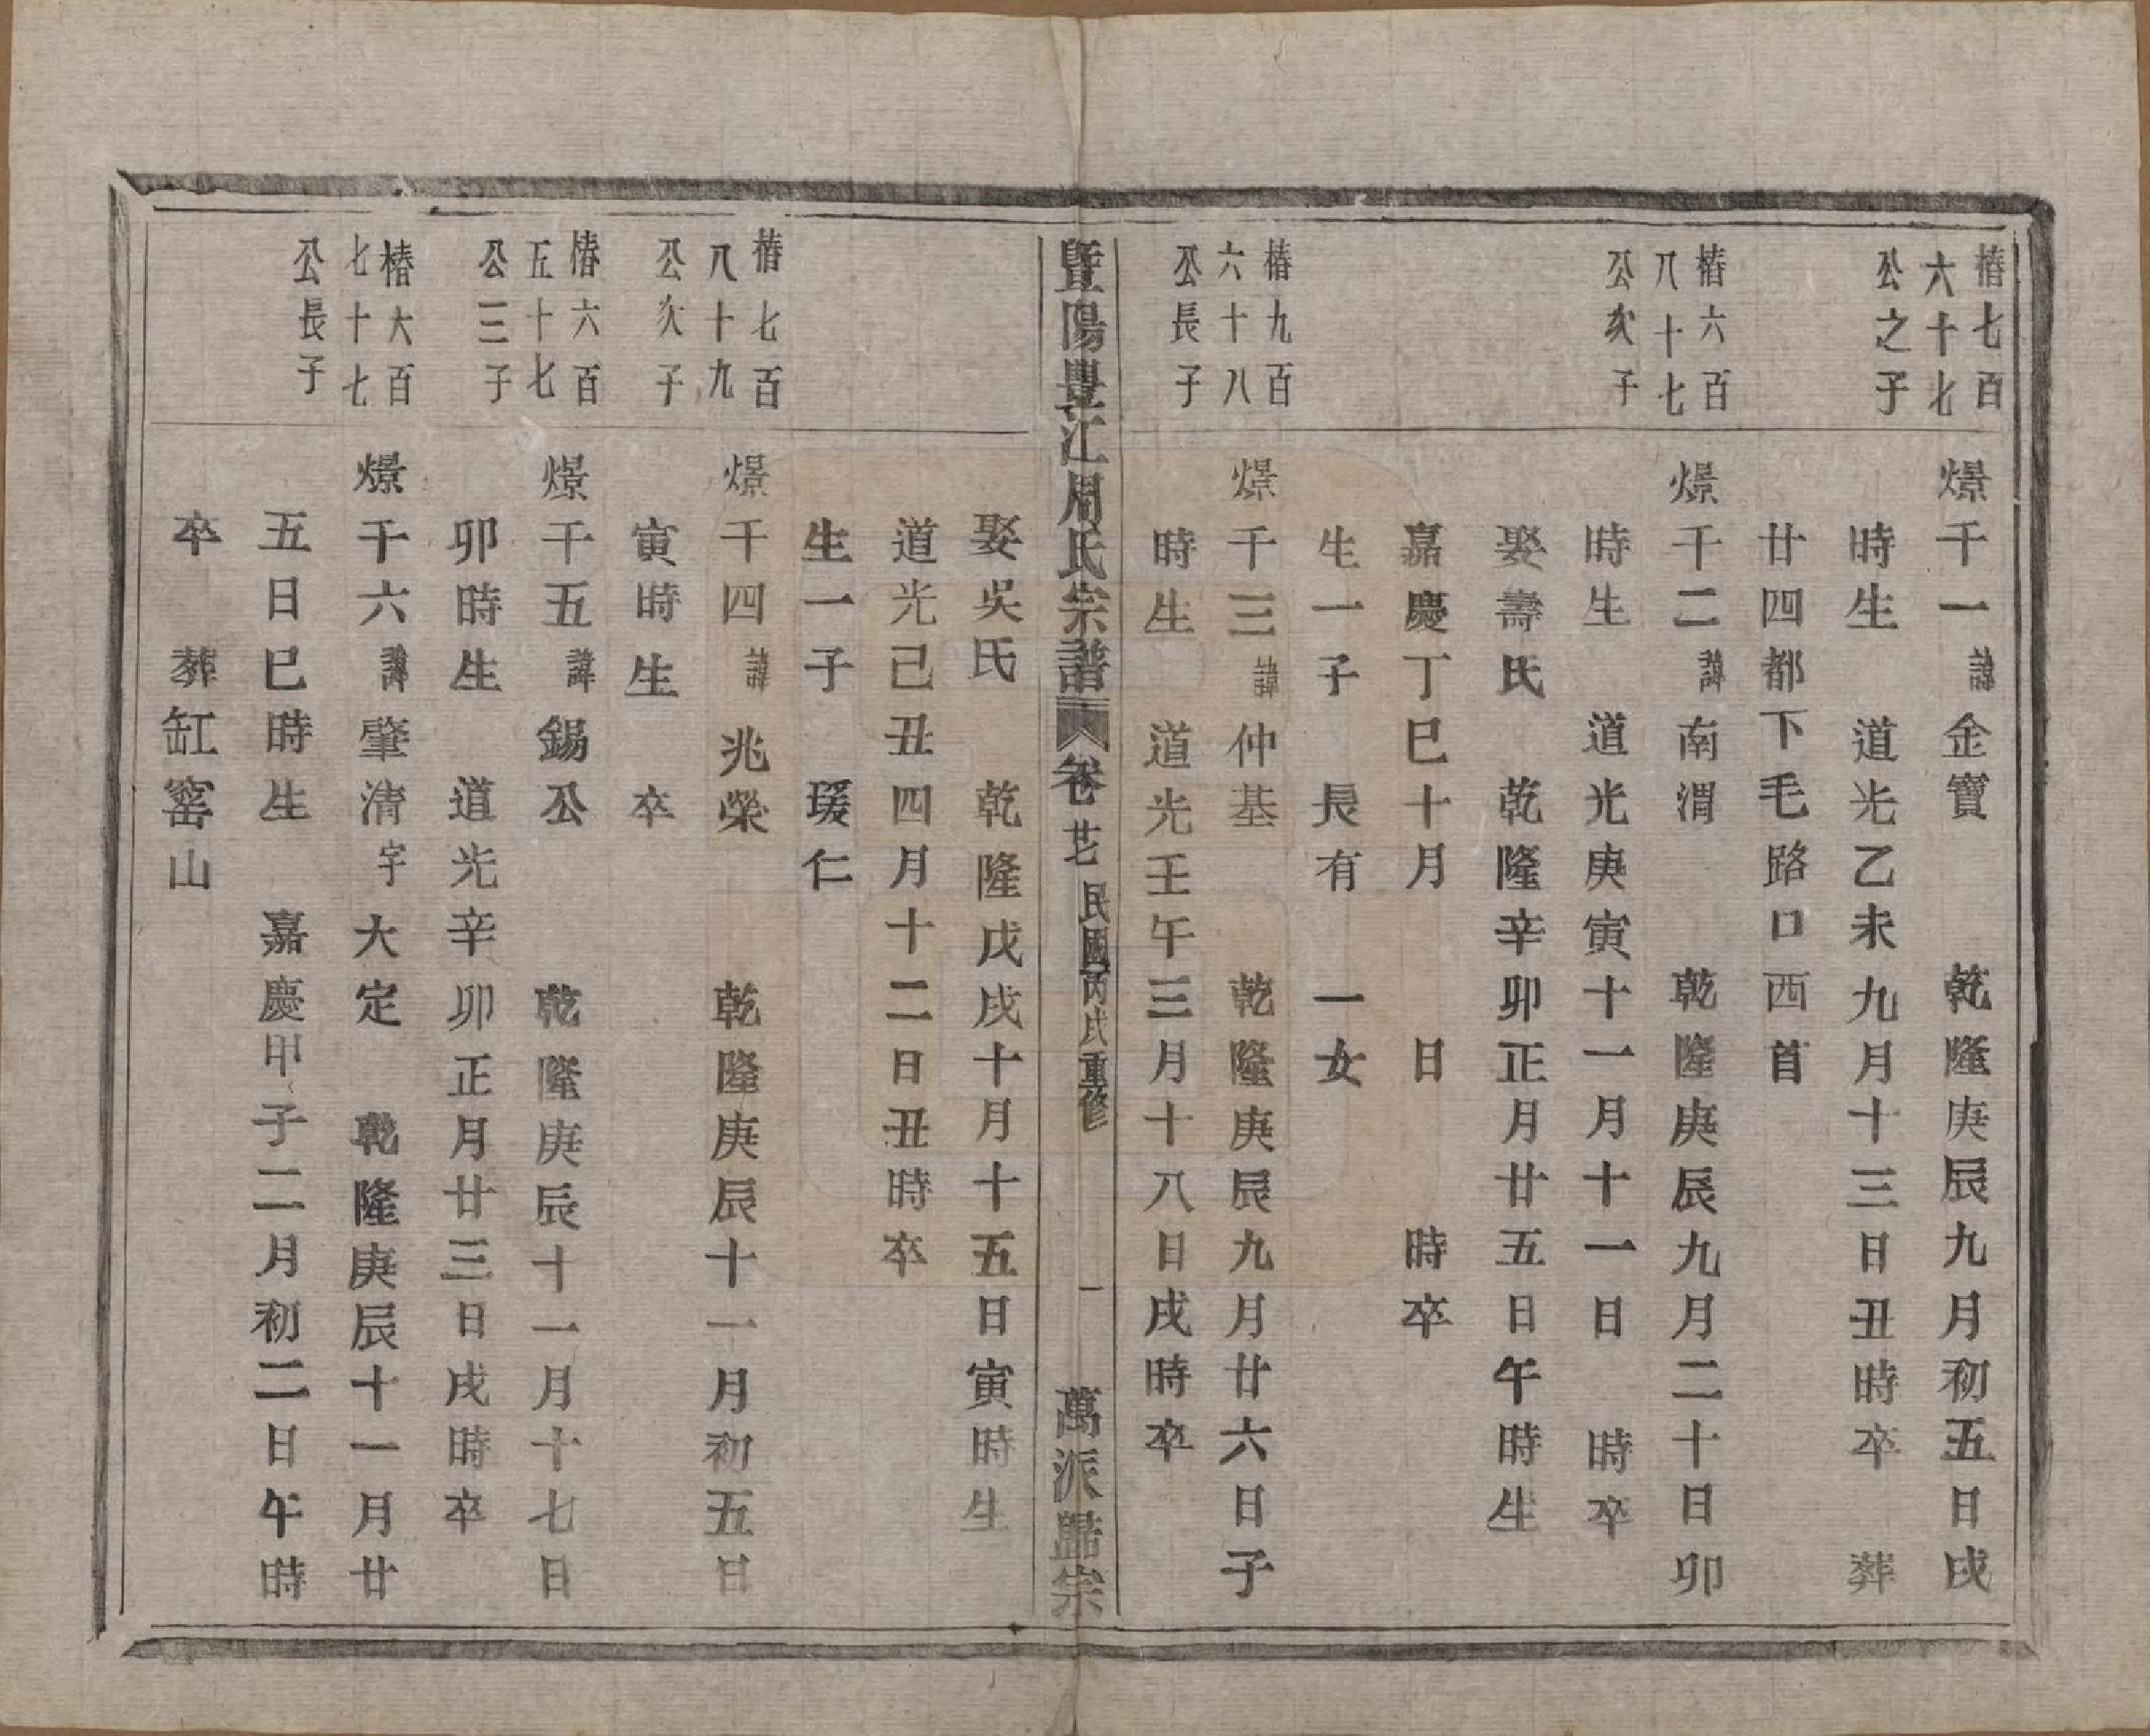 椿七百
六十七
公之子
燝千一諱金寶 乾隆庚辰九月初五日戌
時生 道光乙未九月十三日丑時卒 葬
廿四都下毛路口西首
椿六百
八十七
公次子
燝千二諱南渭 乾隆庚辰九月二十日卯
時生 道光庚寅十一月十一日 時卒
娶壽氏 乾隆辛卯正月廿五日午時生
嘉慶丁巳十月 日 時卒
生一子 長有 一女
椿九百
六十八
公長子
燝千三諱仲基 乾隆庚辰九月廿六日子
時生 道光壬午三月十八日戌時卒
暨陽豐江周氏宗譜 卷廿 民國丙戌重修 一 萬派歸宗
娶吳氏 乾隆戊戌十月十五日寅時生
道光己丑四月十二日丑時卒
生一子 瑗仁
椿七百
八十九
公次子
燝千四諱兆榮 乾隆庚辰十一月初五日
寅時生 卒
椿六百
五十七
公三子
燝千五諱錫公 乾隆庚辰十一月十七日
卯時生 道光辛卯正月廿三日戌時卒
椿六百
七十七
公長子
燝千六諱肇清字大定 乾隆庚辰十一月廿
五日巳時生 嘉慶甲子二月初二日午時
卒 葬缸窰山